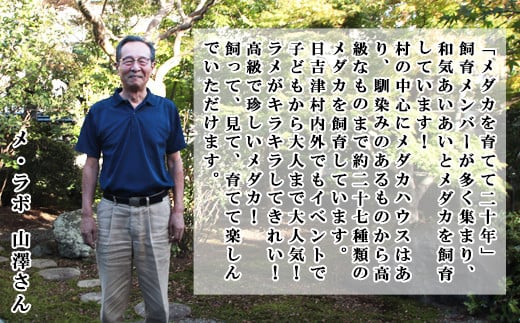 「メダカを育てて二十年」
飼育メンバーが多く集まり、
和気あいあいとメダカを飼育
しています！
村の中心にメダカハウスはあ
り、馴染みのあるものから高
級なものまで約二十七種類の
メダカを飼育しています。
日吉津村内外でもイベントで
子どもから大人まで大人気！
ラメがキラキラしてきれい！
高級で珍しいメダカ！
飼って、見て、育てて楽しん
でいただけます。
メ・ラボ 山澤さん